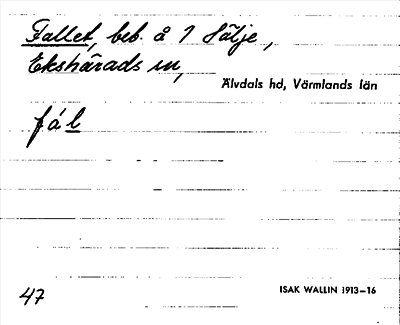 Fallet, beb. å 7 Sälje,
Ekshärads sn,
Älvdals hd, Värmlands län
fál
47
ISAK WALLIN 1913–16